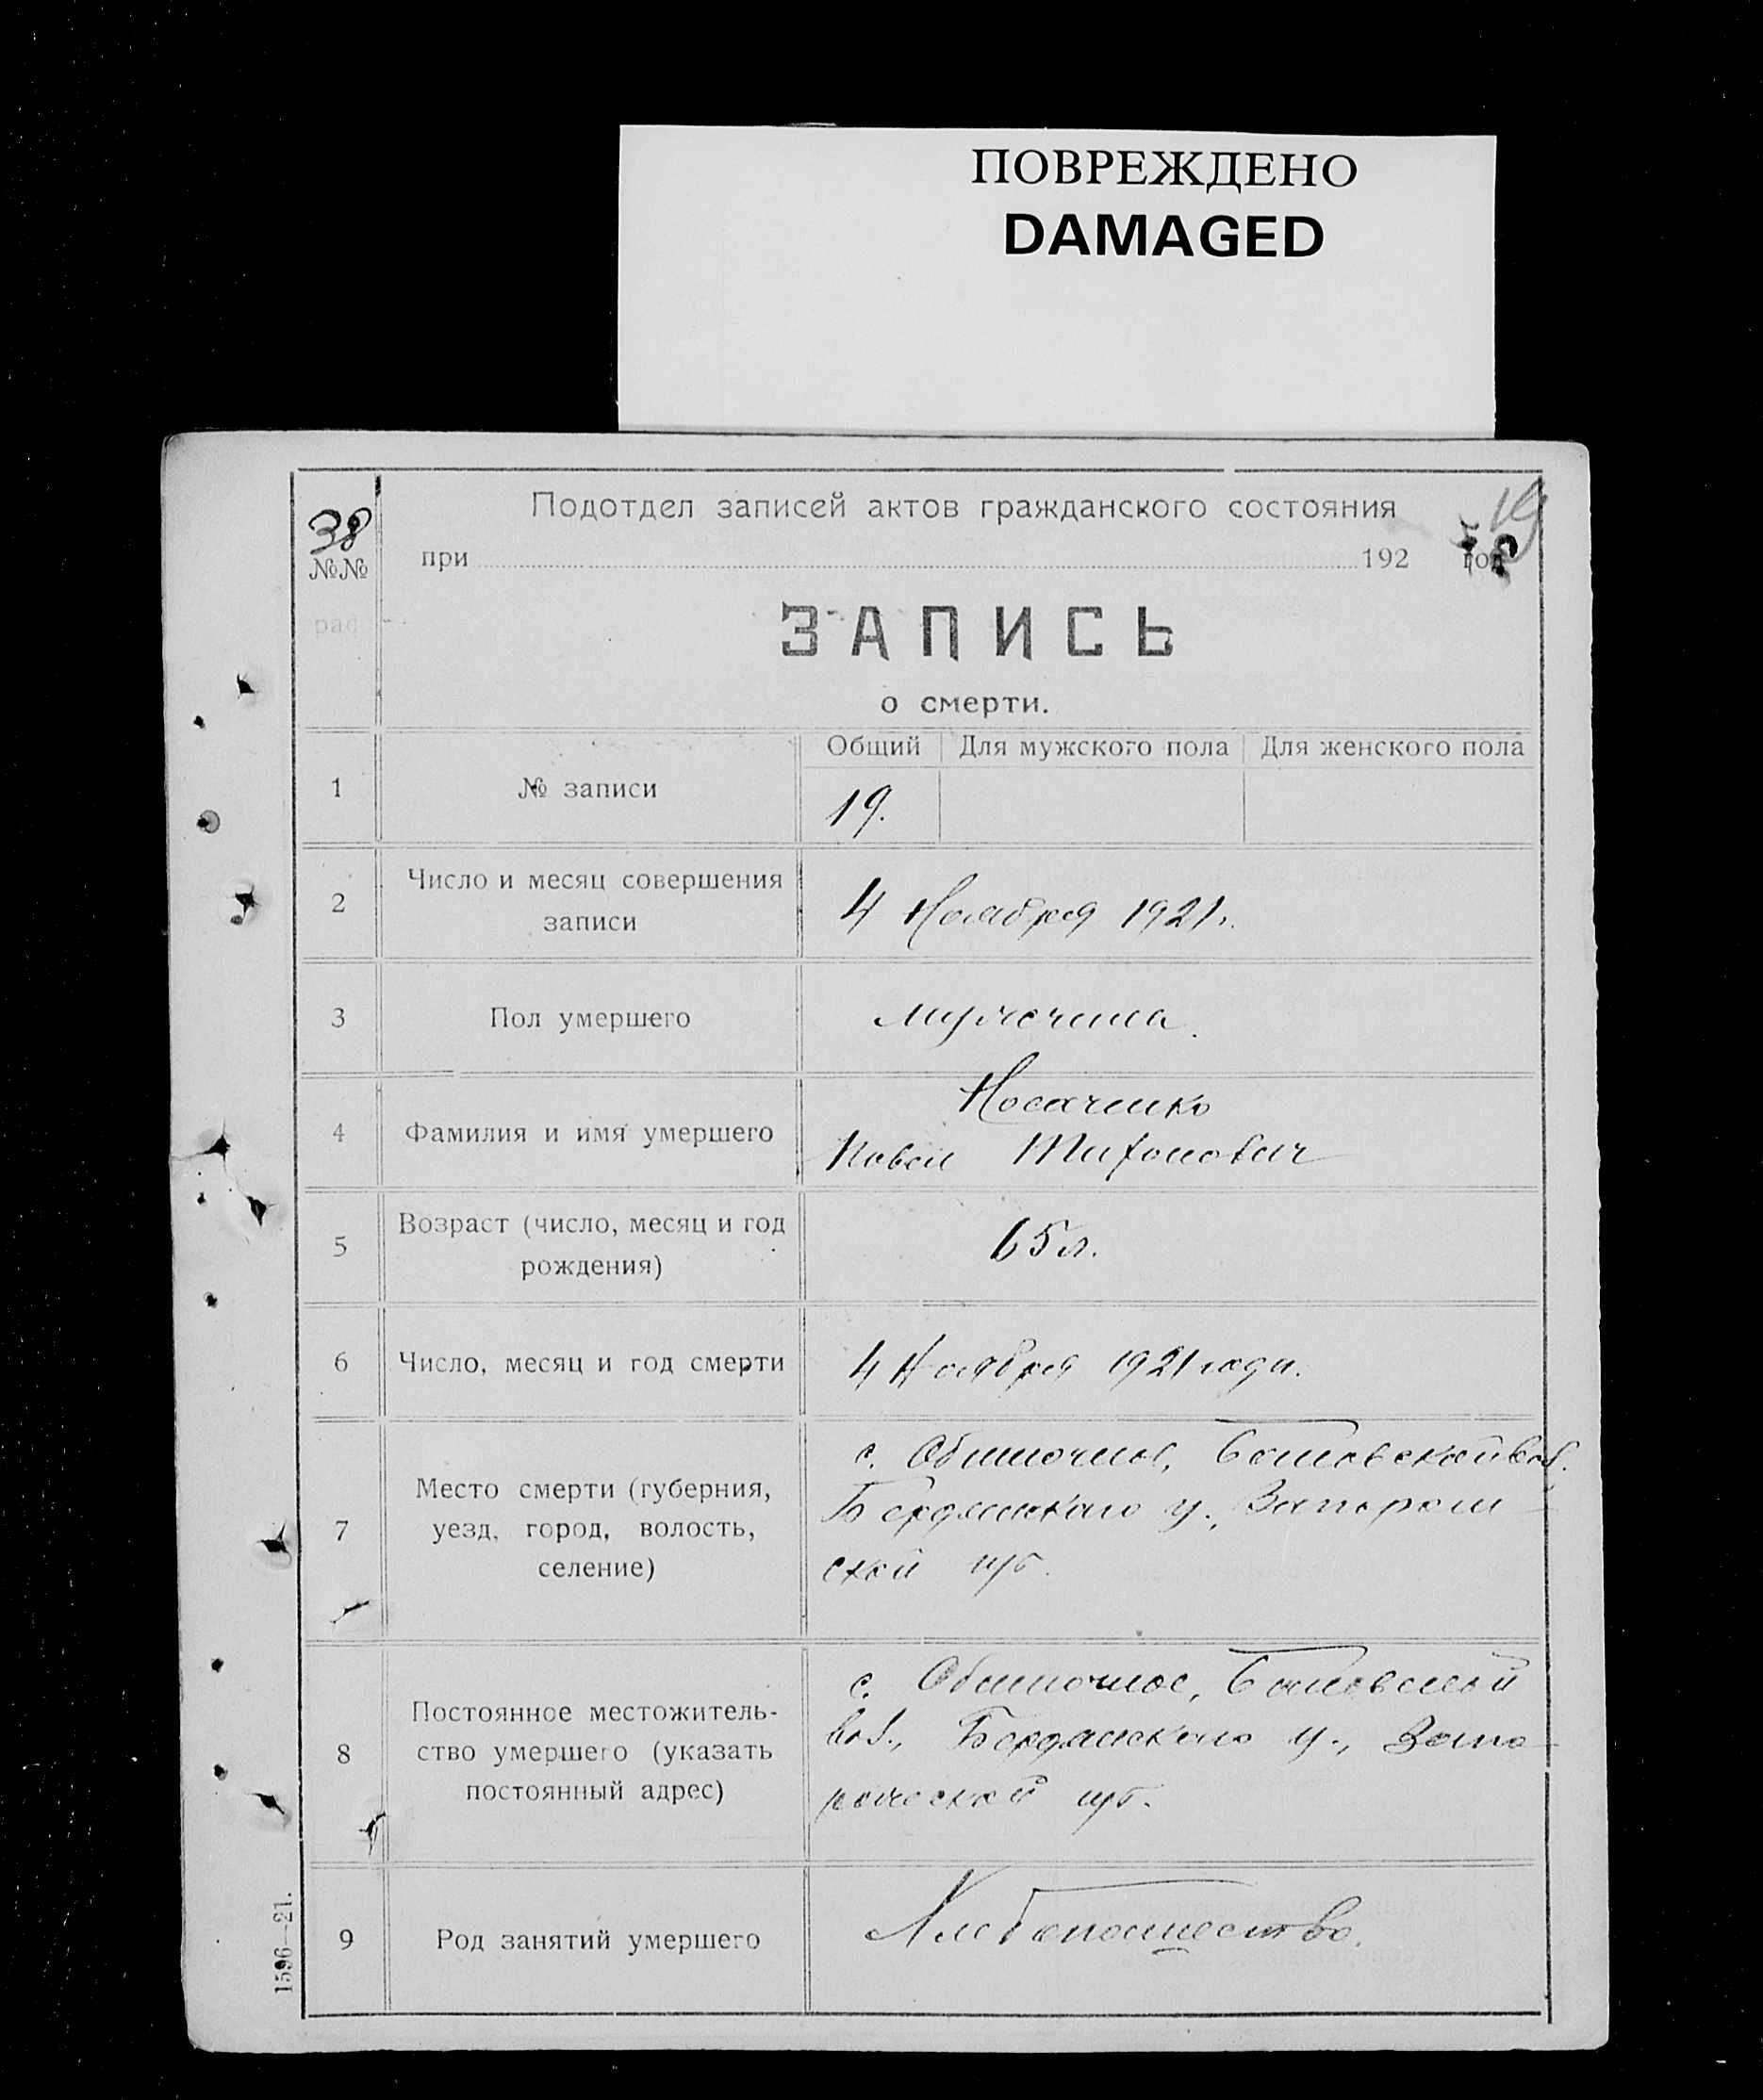 ПОВРЕЖДЕНО
DAMAGED
Подотдел записей актов гражданского состояния
19
38
№№
при 192 год
раф
ЗАПИСЬ
о смерти.
Общий Для мужского пола Для женского пола
1 № записи 19.
2 Число и месяц совершения
записи
4 Ноября 1921 г.
3 Пол умершего мужчина.
4 Фамилия и имя умершего
Носаченко
Павел Тихонович
5 Возраст (число, месяц и год
рождения)
65 л.
6 Число, месяц и год смерти 4 Ноября 1921 года.
7 Место смерти (губерния,
уезд, город, волость,
селение)
с. Обиточное,
Бердянскаго у., Запорож
ской губ.
8 Постоянное местожитель-
ство умершего (указать
постоянный адрес)
с. Обиточное,
вол., Бердянского у., Запо
рожской губ.
9 Род занятий умершего Хлебопашество.
1596—21.